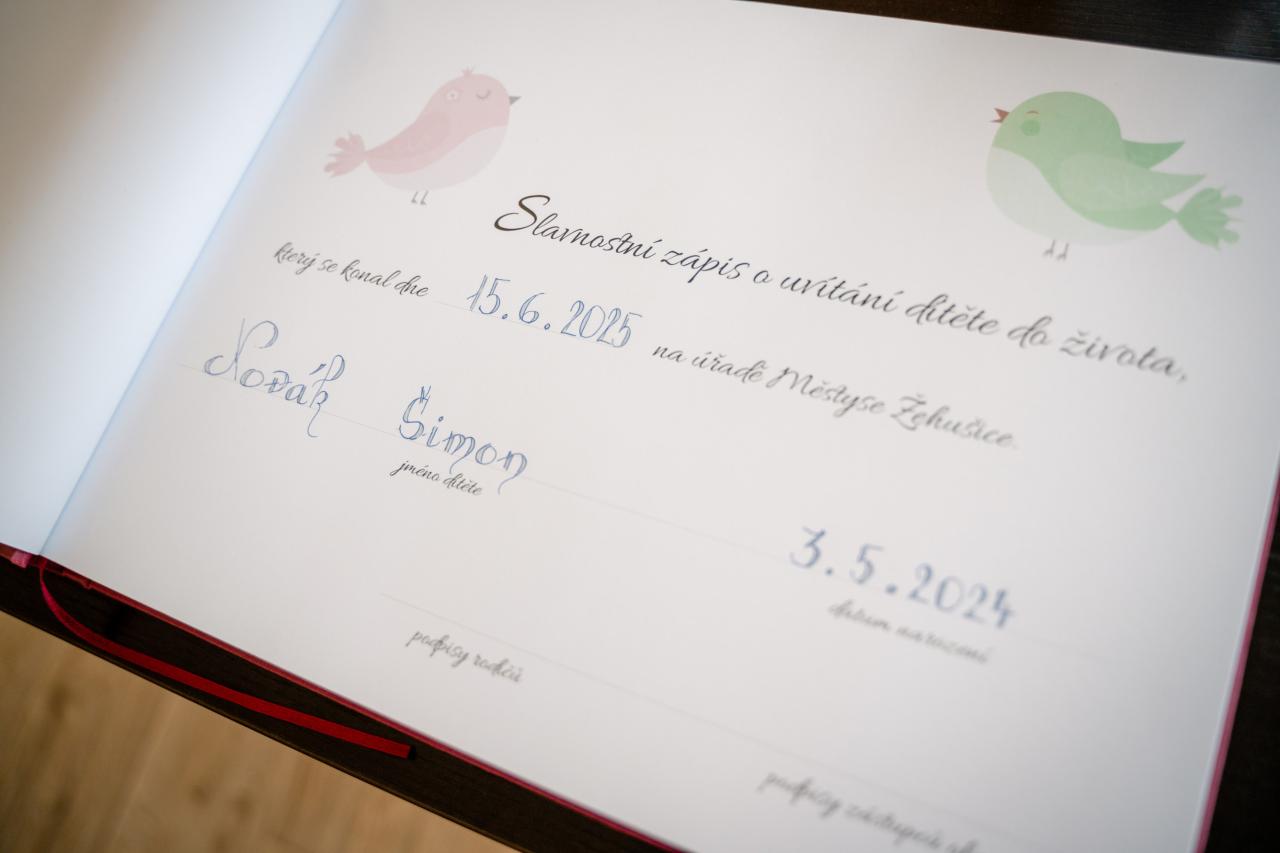 Slavnostní zápis o uvítání dítěte do života,
který se konal dne 15.6.2025 na úřadě Městyse Žehušice.
Novák Šimon
jméno dítěte
3.5.2024
datum narození
podpisy rodičů
podpisy zástupců